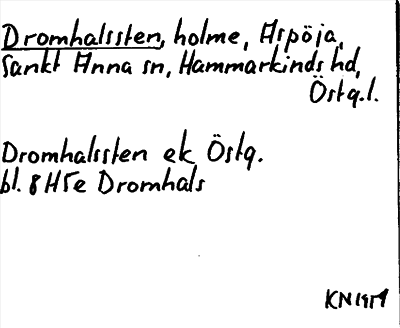 Dromhalssten, holme, Aspöja,
Sankt Anna sn, Hammarkinds hd,
Östg.l.
Dromhalssten ek Östg.
bl. 8H5e Dromhals